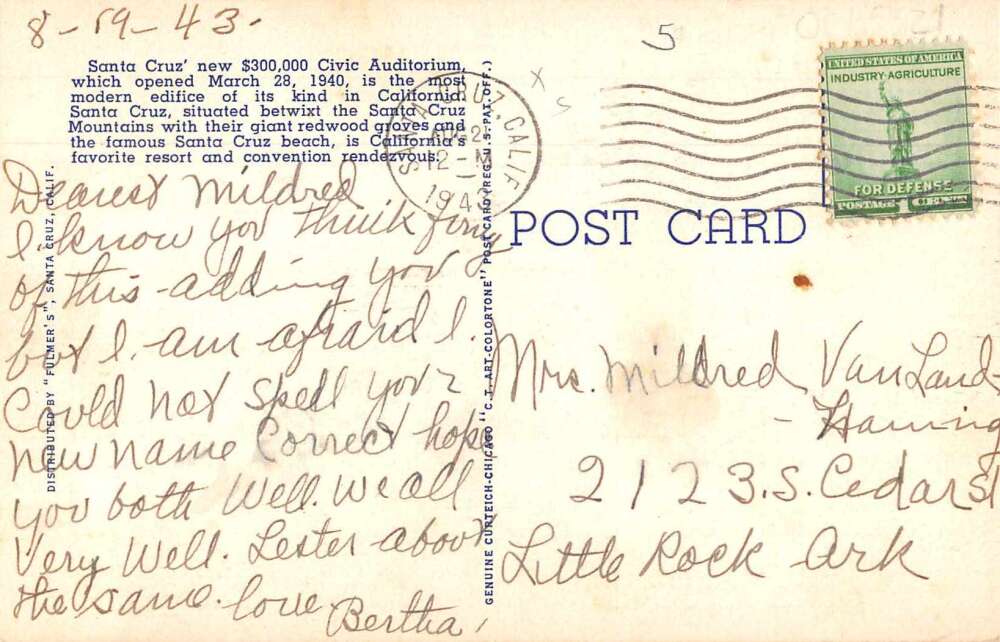 8-19-43.
5
Santa Cruz' new $300,000 Civic Auditorium,
which opened March 28, 1940, is the most
modern edifice of its kind in California.
Santa Cruz, situated betwixt the Santa Cruz
Mountains with their giant redwood groves and
the famous Santa Cruz beach, is California's
favorite resort and convention rendezvous.
Dearest Mildred
I. know you think funy
of this - adding you
but I. am afraid I.
Could not spell your
new name Correct hope
you both Well. We all
Very Well. Lester about
the same. love
Bertha,
DISTRIBUTED BY "FULMER'S", SANTA CRUZ, CALIF.
GENUINE CURTEICH-CHICAGO "C.T. ART-COLORTONE" POST CARD (REG. U.S. PAT. OFF.)
SANTA CRUZ, CALIF.
12-M
1943
UNITED STATES OF AMERICA
INDUSTRY·AGRICULTURE
FOR DEFENSE
POSTAGE 1 CENT
POST CARD
Mrs. Mildred VanLand-
- Haming
2123.S. Cedar St
Little Rock Ark